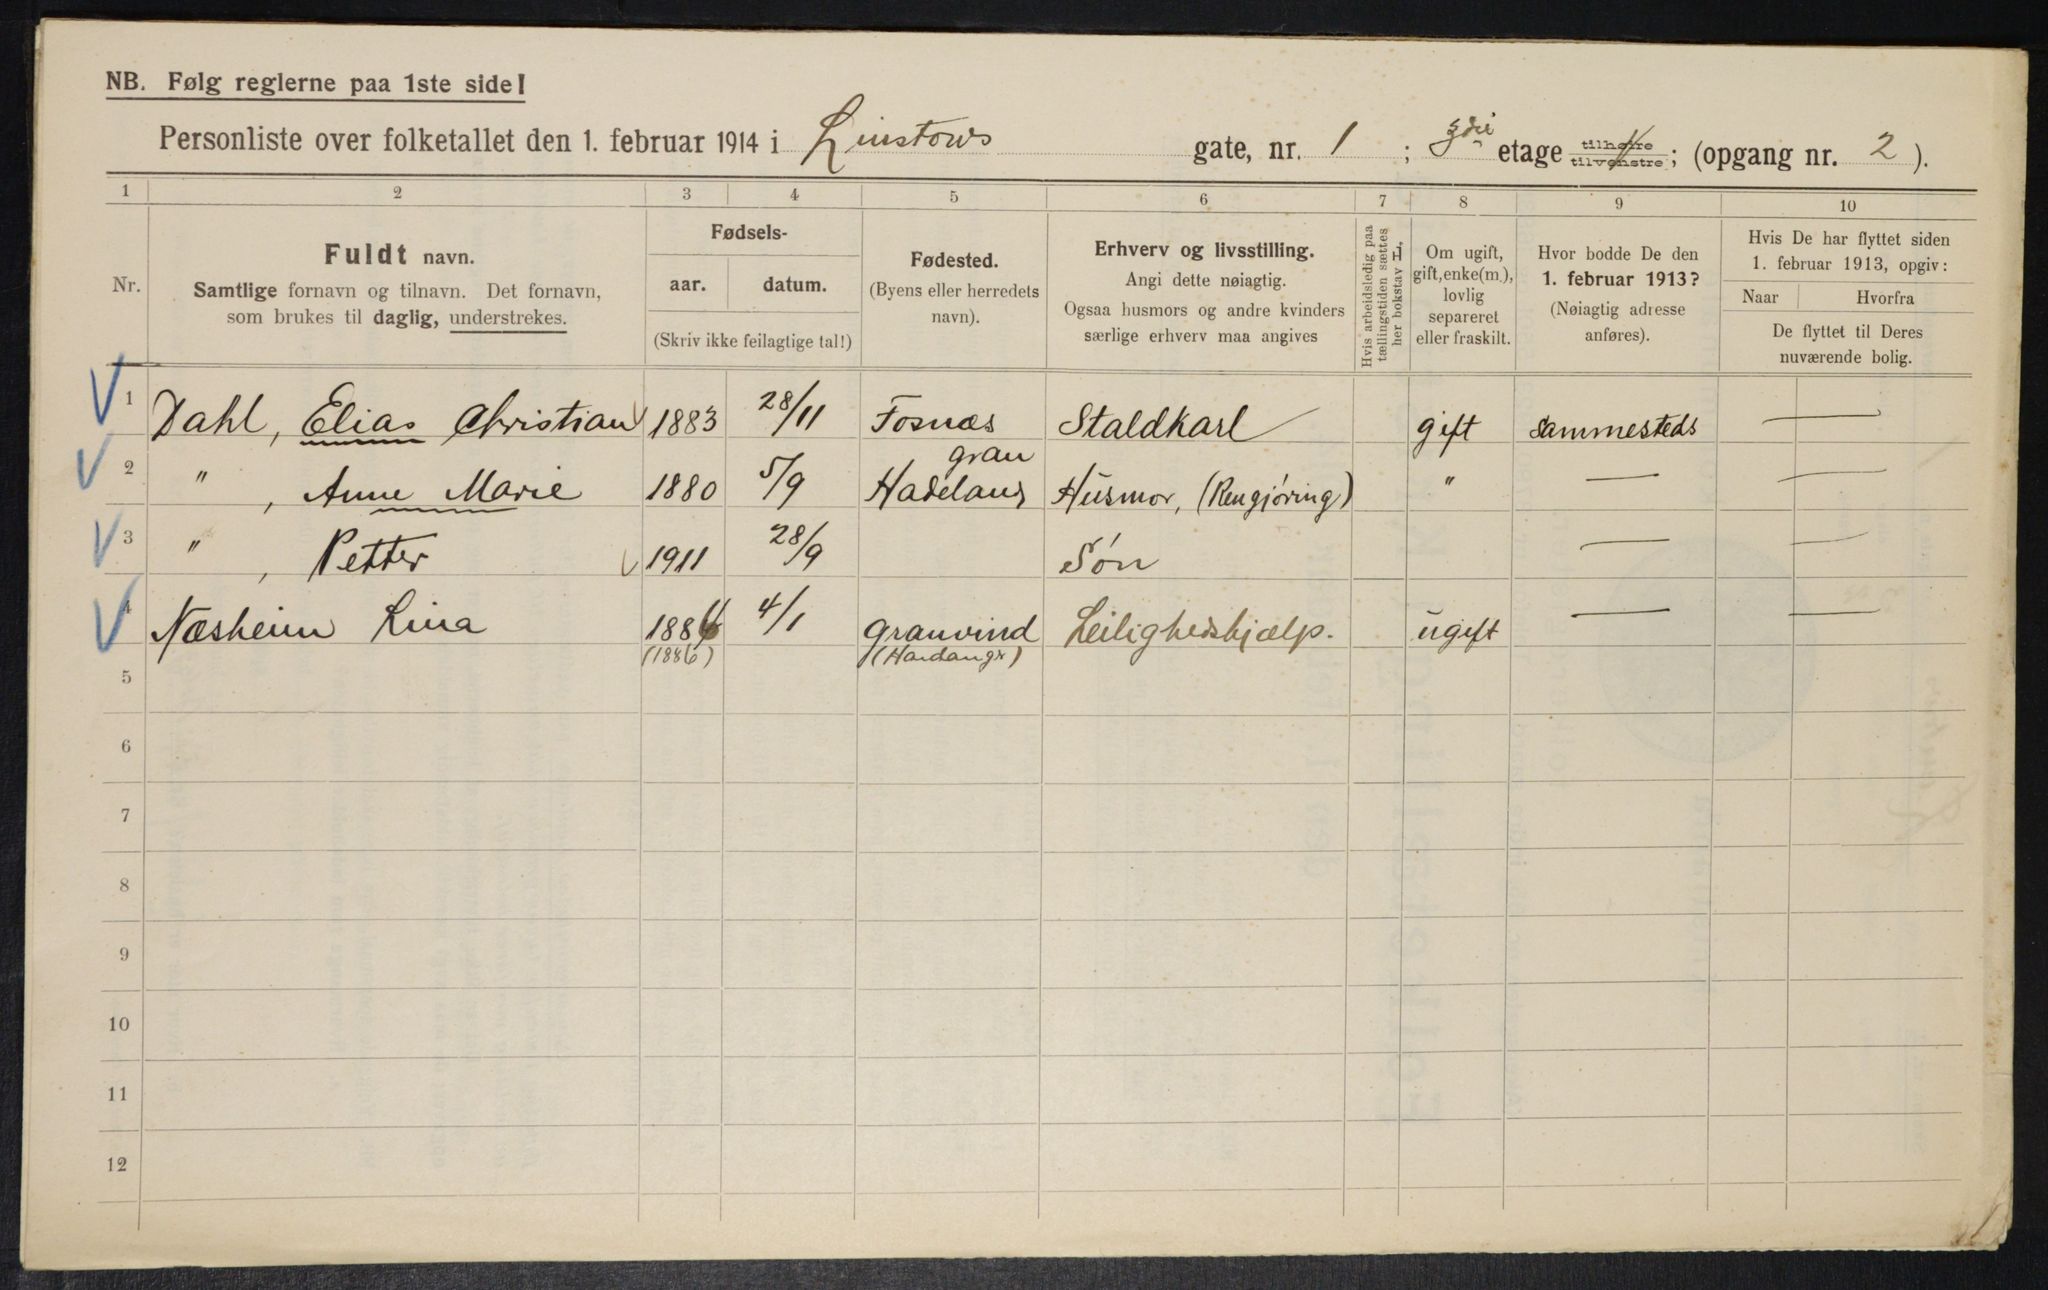 NB. Følg reglerne paa 1ste side!
Personliste over folketallet den 1. februar 1914 i Linstows gate, nr. 1 ; 3die etage tilhøire tilvenstre; (opgang nr. 2 ).
1 2 3 4 5 6 7 8 9 10
Nr.
Fuldt navn.
Samtlige fornavn og tilnavn. Det fornavn,
som brukes til daglig, understrekes.
Fødsels-
aar. datum.
(Skriv ikke feilagtige tal!)
Fødested.
(Byens eller herredets
navn).
Erhverv og livsstilling.
Angi dette nøiagtig.
Ogsaa husmors og andre kvinders
særlige erhverv maa angives
Hvis arbeidsledig paa
tællingstiden sættes
her bokstav L.
Om ugift,
gift, enke(m.),
lovlig
separeret
eller fraskilt.
Hvor bodde De den
1. februar 1913?
(Nøiagtig adresse
anføres).
Hvis De har flyttet siden
1. februar 1913, opgiv:
Naar Hvorfra
De flyttet til Deres
nuværende bolig.
1 Dahl, Elias Christian 1883 28/11 Fosnæs Staldkarl gift sammesteds —
2 " , Anne Marie 1880 5/9 Gran Hadeland Husmor, (Rengjøring) " — —
3 " , Petter 1911 28/9 Søn — —
4 Næsheim Lina 1886 4/1 Granvind Leilighedshjælp. ugift — —
(1886) (Hardanger)
5
6
7
8
9
10
11
12